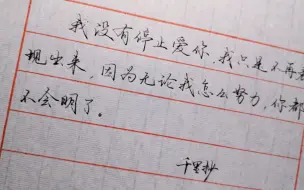 我没有停止爱你,我只是不再表
现出来,因为无论我怎么努力,你都
不会明了。
千里抄